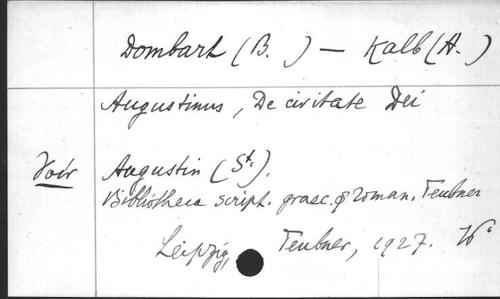 Dombart (B. ) — Kalb (A. )
Augustinus, De civitate Dei
Voir Augustin (St.).
Bibliotheca script. graec. & roman. Teubner
Leipzig, Teubner, 1927.